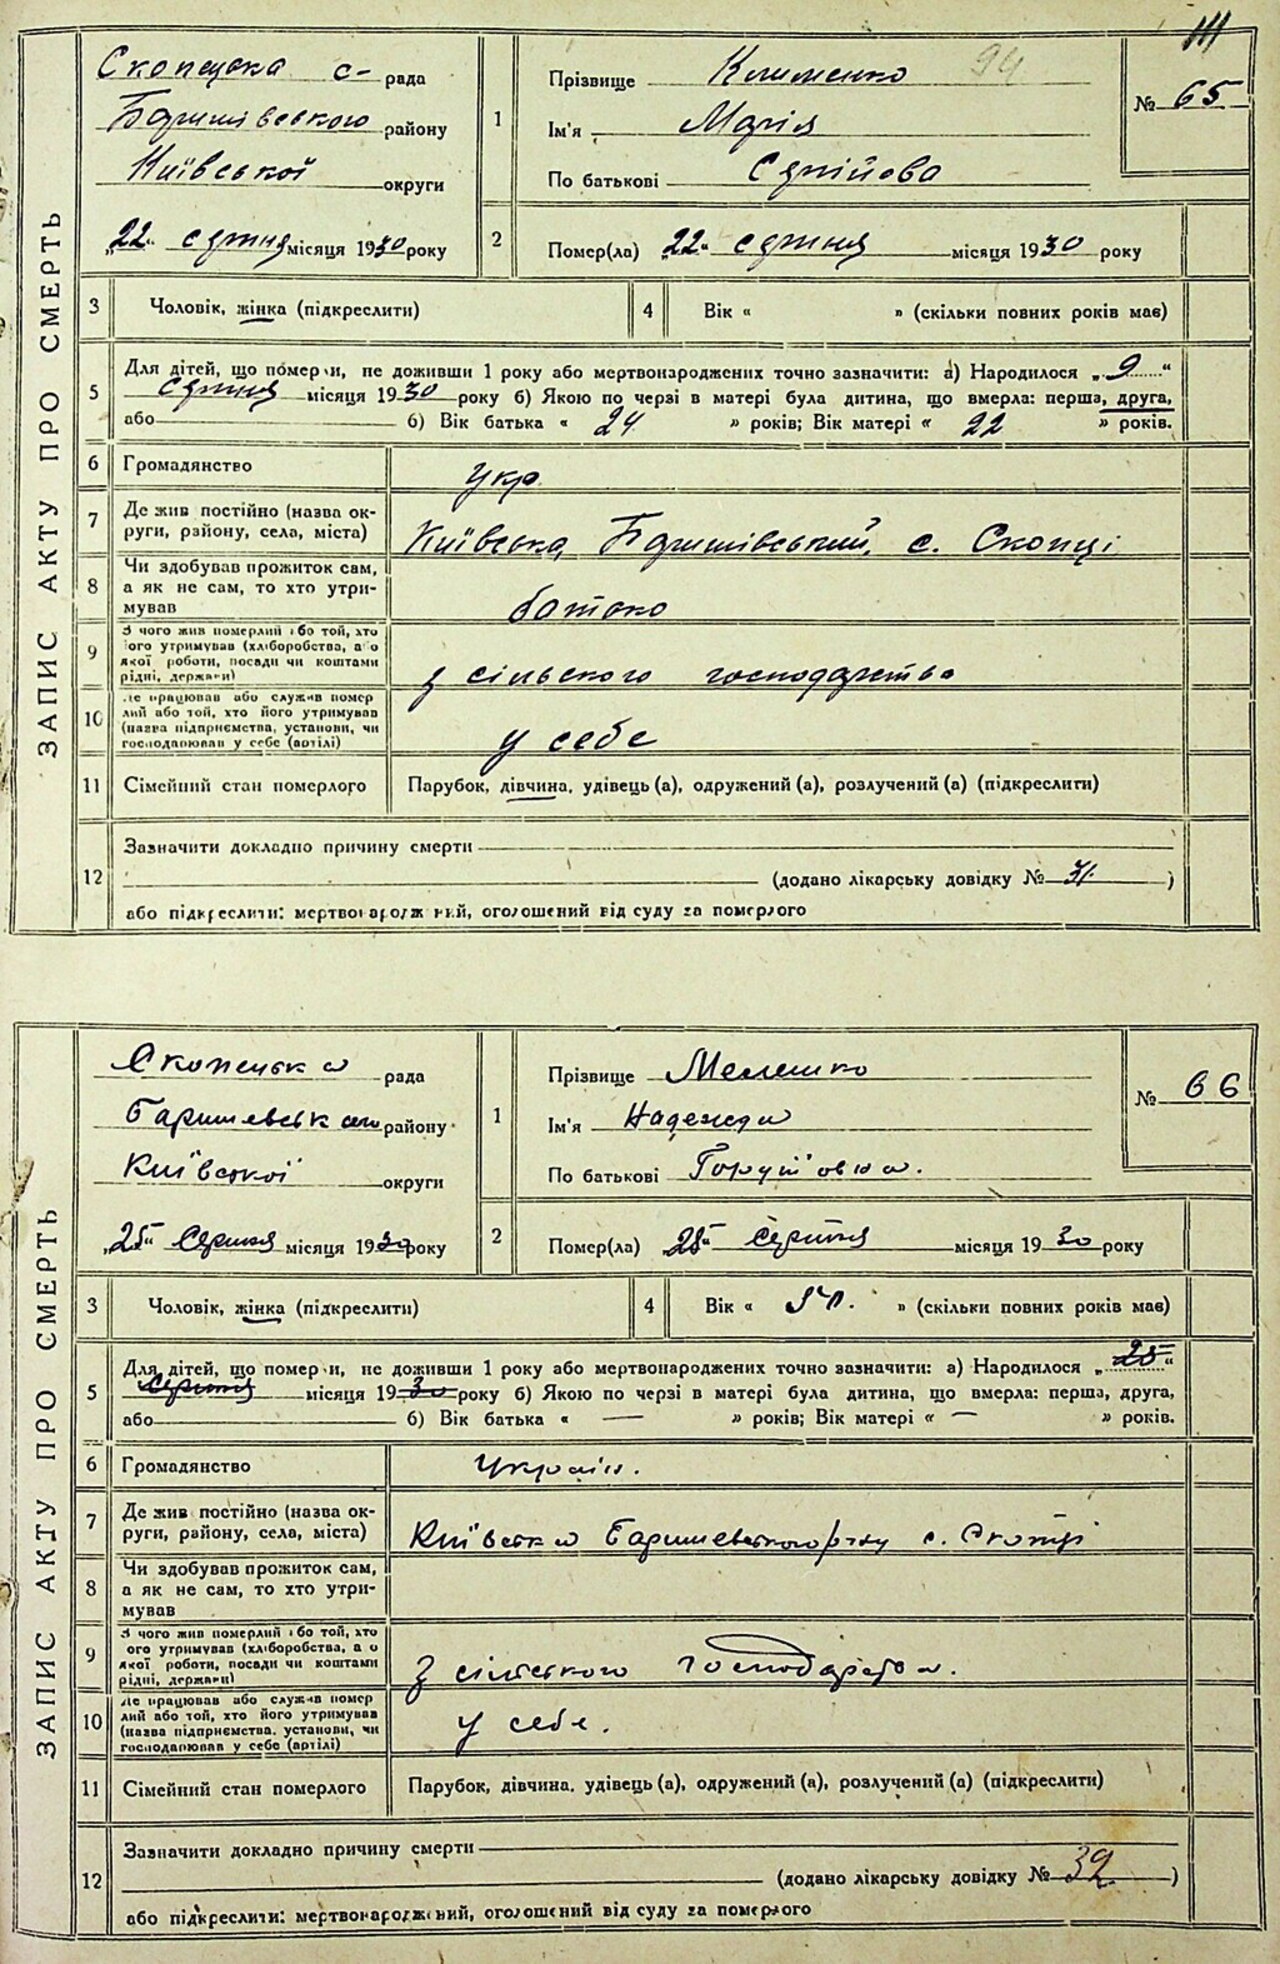 111
94
ЗАПИС АКТУ ПРО СМЕРТЬ
Скопецька с- рада
Баришівського району
Київської округи
„22“ серпня місяця 1930 року
1
Прізвище Клименко
Ім'я Марія
По батькові Сергійова
№ 65
2
Помер(ла) „22“ серпня місяця 1930 року
3 Чоловік, жінка (підкреслити)
4 Вік « » (скільки повних років має)
5 Для дітей, що померли, не доживши 1 року або мертвонароджених точно зазначити: а) Народилося „9“
серпня місяця 1930 року б) Якою по черзі в матері була дитина, що вмерла: перша, друга,
або б) Вік батька « 24 » років; Вік матері « 22 » років.
6 Громадянство укр.
7 Де жив постійно (назва ок-
руги, району, села, міста) Київська, Баришівський, с. Скопці
8 Чи здобував прожиток сам,
а як не сам, то хто утри-
мував батько
9 З чого жив померлий або той, хто
його утримував (хліборобства, або
якої роботи, посади чи коштами
рідні, держави) з сільського господарства
10 Де працював або служив помер
лий або той, хто його утримував
(назва підприємства, установи, чи
господарював у себе (артілі) у себе
11 Сімейний стан померлого Парубок, дівчина, удівець (а), одружений (а), розлучений (а) (підкреслити)
12 Зазначити докладно причину смерти
(додано лікарську довідку № 31. )
або підкреслити: мертвонароджений, оголошений від суду за померлого
ЗАПИС АКТУ ПРО СМЕРТЬ
Скопецька рада
Баришевського району
Київської округи
„25“ Серпня місяця 1930 року
1
Прізвище Мелешко
Ім'я Надежда
По батькові Гордіївна.
№ 66
2
Помер(ла) „25“ Серпня місяця 1930 року
3 Чоловік, жінка (підкреслити)
4 Вік « » (скільки повних років має)
5 Для дітей, що померли, не доживши 1 року або мертвонароджених точно зазначити: а) Народилося „25“
Серпня місяця 1930 року б) Якою по черзі в матері була дитина, що вмерла: перша, друга,
або б) Вік батька « — » років; Вік матері « — » років.
6 Громадянство Україн.
7 Де жив постійно (назва ок-
руги, району, села, міста) Київська Баришевського р-ну с. Скопці
8 Чи здобував прожиток сам,
а як не сам, то хто утри-
мував
9 З чого жив померлий або той, хто
його утримував (хліборобства, або
якої роботи, посади чи коштами
рідні, держави) з сільського господарства.
10 Де працював або служив помер
лий або той, хто його утримував
(назва підприємства, установи, чи
господарював у себе (артілі) у себе.
11 Сімейний стан померлого Парубок, дівчина, удівець (а), одружений (а), розлучений (а) (підкреслити)
12 Зазначити докладно причину смерти
(додано лікарську довідку № 32 )
або підкреслити: мертвонароджений, оголошений від суду за померлого